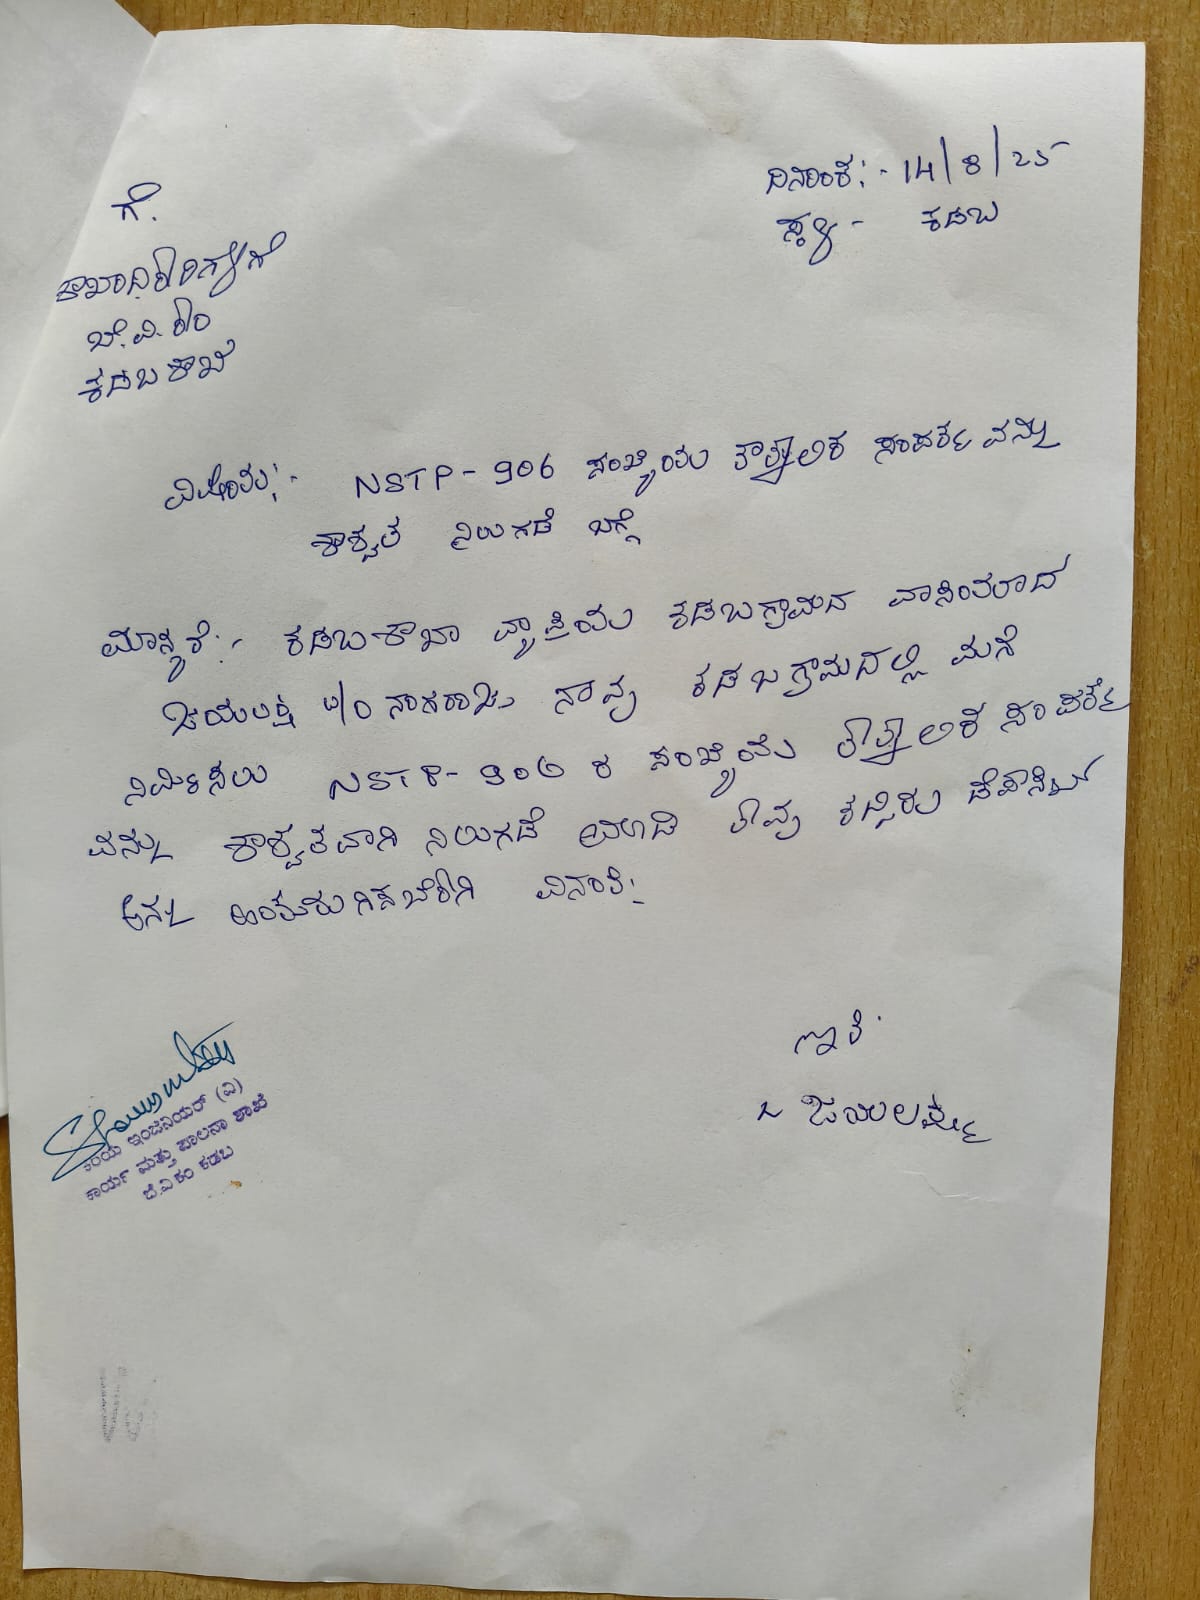 ದಿನಾಂಕ:- 14/8/25
ಸ್ಥಳ - ಕಡಬ
ಗೆ.
ಶಾಖಾಧಿಕಾರಿಗಳಿಗೆ
ಬೆ.ವಿ.ಕಂ
ಕಡಬ ಶಾಖೆ
ವಿಷಯ:- NSTP-906 ಸಂಖ್ಯೆಯ ತಾತ್ಕಾಲಿಕ ಸಂಪರ್ಕವನ್ನು
ಶಾಶ್ವತ ನಿಲುಗಡೆ ಬಗ್ಗೆ
ಮಾನ್ಯರೆ:- ಕಡಬ ಶಾಖಾ ವ್ಯಾಪ್ತಿಯ ಕಡಬ ಗ್ರಾಮದ ವಾಸಿಯಾದ
ಜಯಲಕ್ಷ್ಮಿ W/O ನಾಗರಾಜು ನಾವು ಕಡಬ ಗ್ರಾಮದಲ್ಲಿ ಮನೆ
ನಿರ್ಮಿಸಲು NSTP-906 ರ ಸಂಖ್ಯೆಯ ತಾತ್ಕಾಲಿಕ ಸಂಪರ್ಕ
ವನ್ನು ಶಾಶ್ವತವಾಗಿ ನಿಲುಗಡೆ ಮಾಡಿ ನಾವು ಕಟ್ಟಿರು ಡೆಪಾಸಿಟ್
ಅನ್ನು ಹಿಂತಿರುಗಿಸಬೇಕಾಗಿ ವಿನಂತಿ:
ಇತಿ.
ಜಯಲಕ್ಷ್ಮಿ
ಕಿರಿಯ ಇಂಜಿನಿಯರ್ (ವಿ)
ಕಾರ್ಯ ಮತ್ತು ಪಾಲನಾ ಶಾಖೆ
ಬೆ.ವಿ.ಕಂ ಕಡಬ